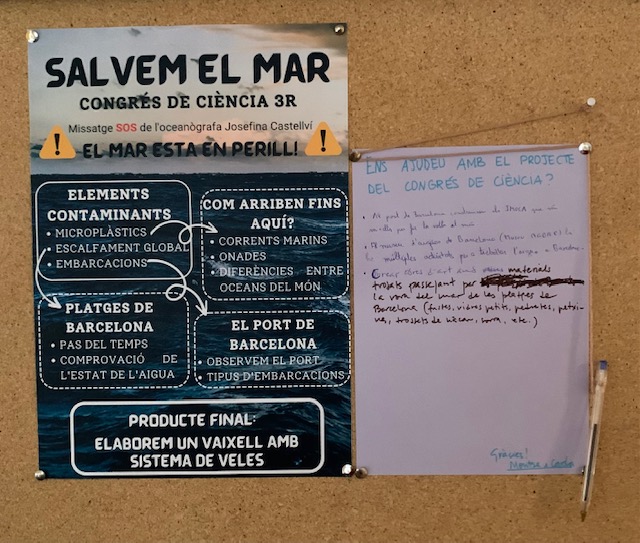 SALVEM EL MAR
CONGRÉS DE CIÈNCIA 3R
Missatge SOS de l'oceanògrafa Josefina Castellví
EL MAR ESTA EN PERILL!
ELEMENTS
CONTAMINANTS
• MICROPLÀSTICS
• ESCALFAMENT GLOBAL
• EMBARCACIONS
COM ARRIBEN FINS
AQUÍ?
• CORRENTS MARINS
• ONADES
• DIFERÈNCIES ENTRE
OCEANS DEL MÓN
PLATGES DE
BARCELONA
• PAS DEL TEMPS
• COMPROVACIÓ DE
L'ESTAT DE L'AIGUA
EL PORT DE
BARCELONA
• OBSERVEM EL PORT
• TIPUS D'EMBARCACIONS
PRODUCTE FINAL:
ELABOREM UN VAIXELL AMB
SISTEMA DE VELES
ENS AJUDEU AMB EL PROJECTE
DEL CONGRÉS DE CIÈNCIA?
• Al port de Barcelona
• El museu d'aigües de Barcelona (Museu AGBAR)
múltiples activitats per a
• Crear obres d'art amb materials
trobats passejant per
la vora del mar de les platges de
Barcelona (fustes, vidres petits, pedretes, petxi-
nes, trossets de nàcar, sorra, etc.)
Gràcies!
Montse